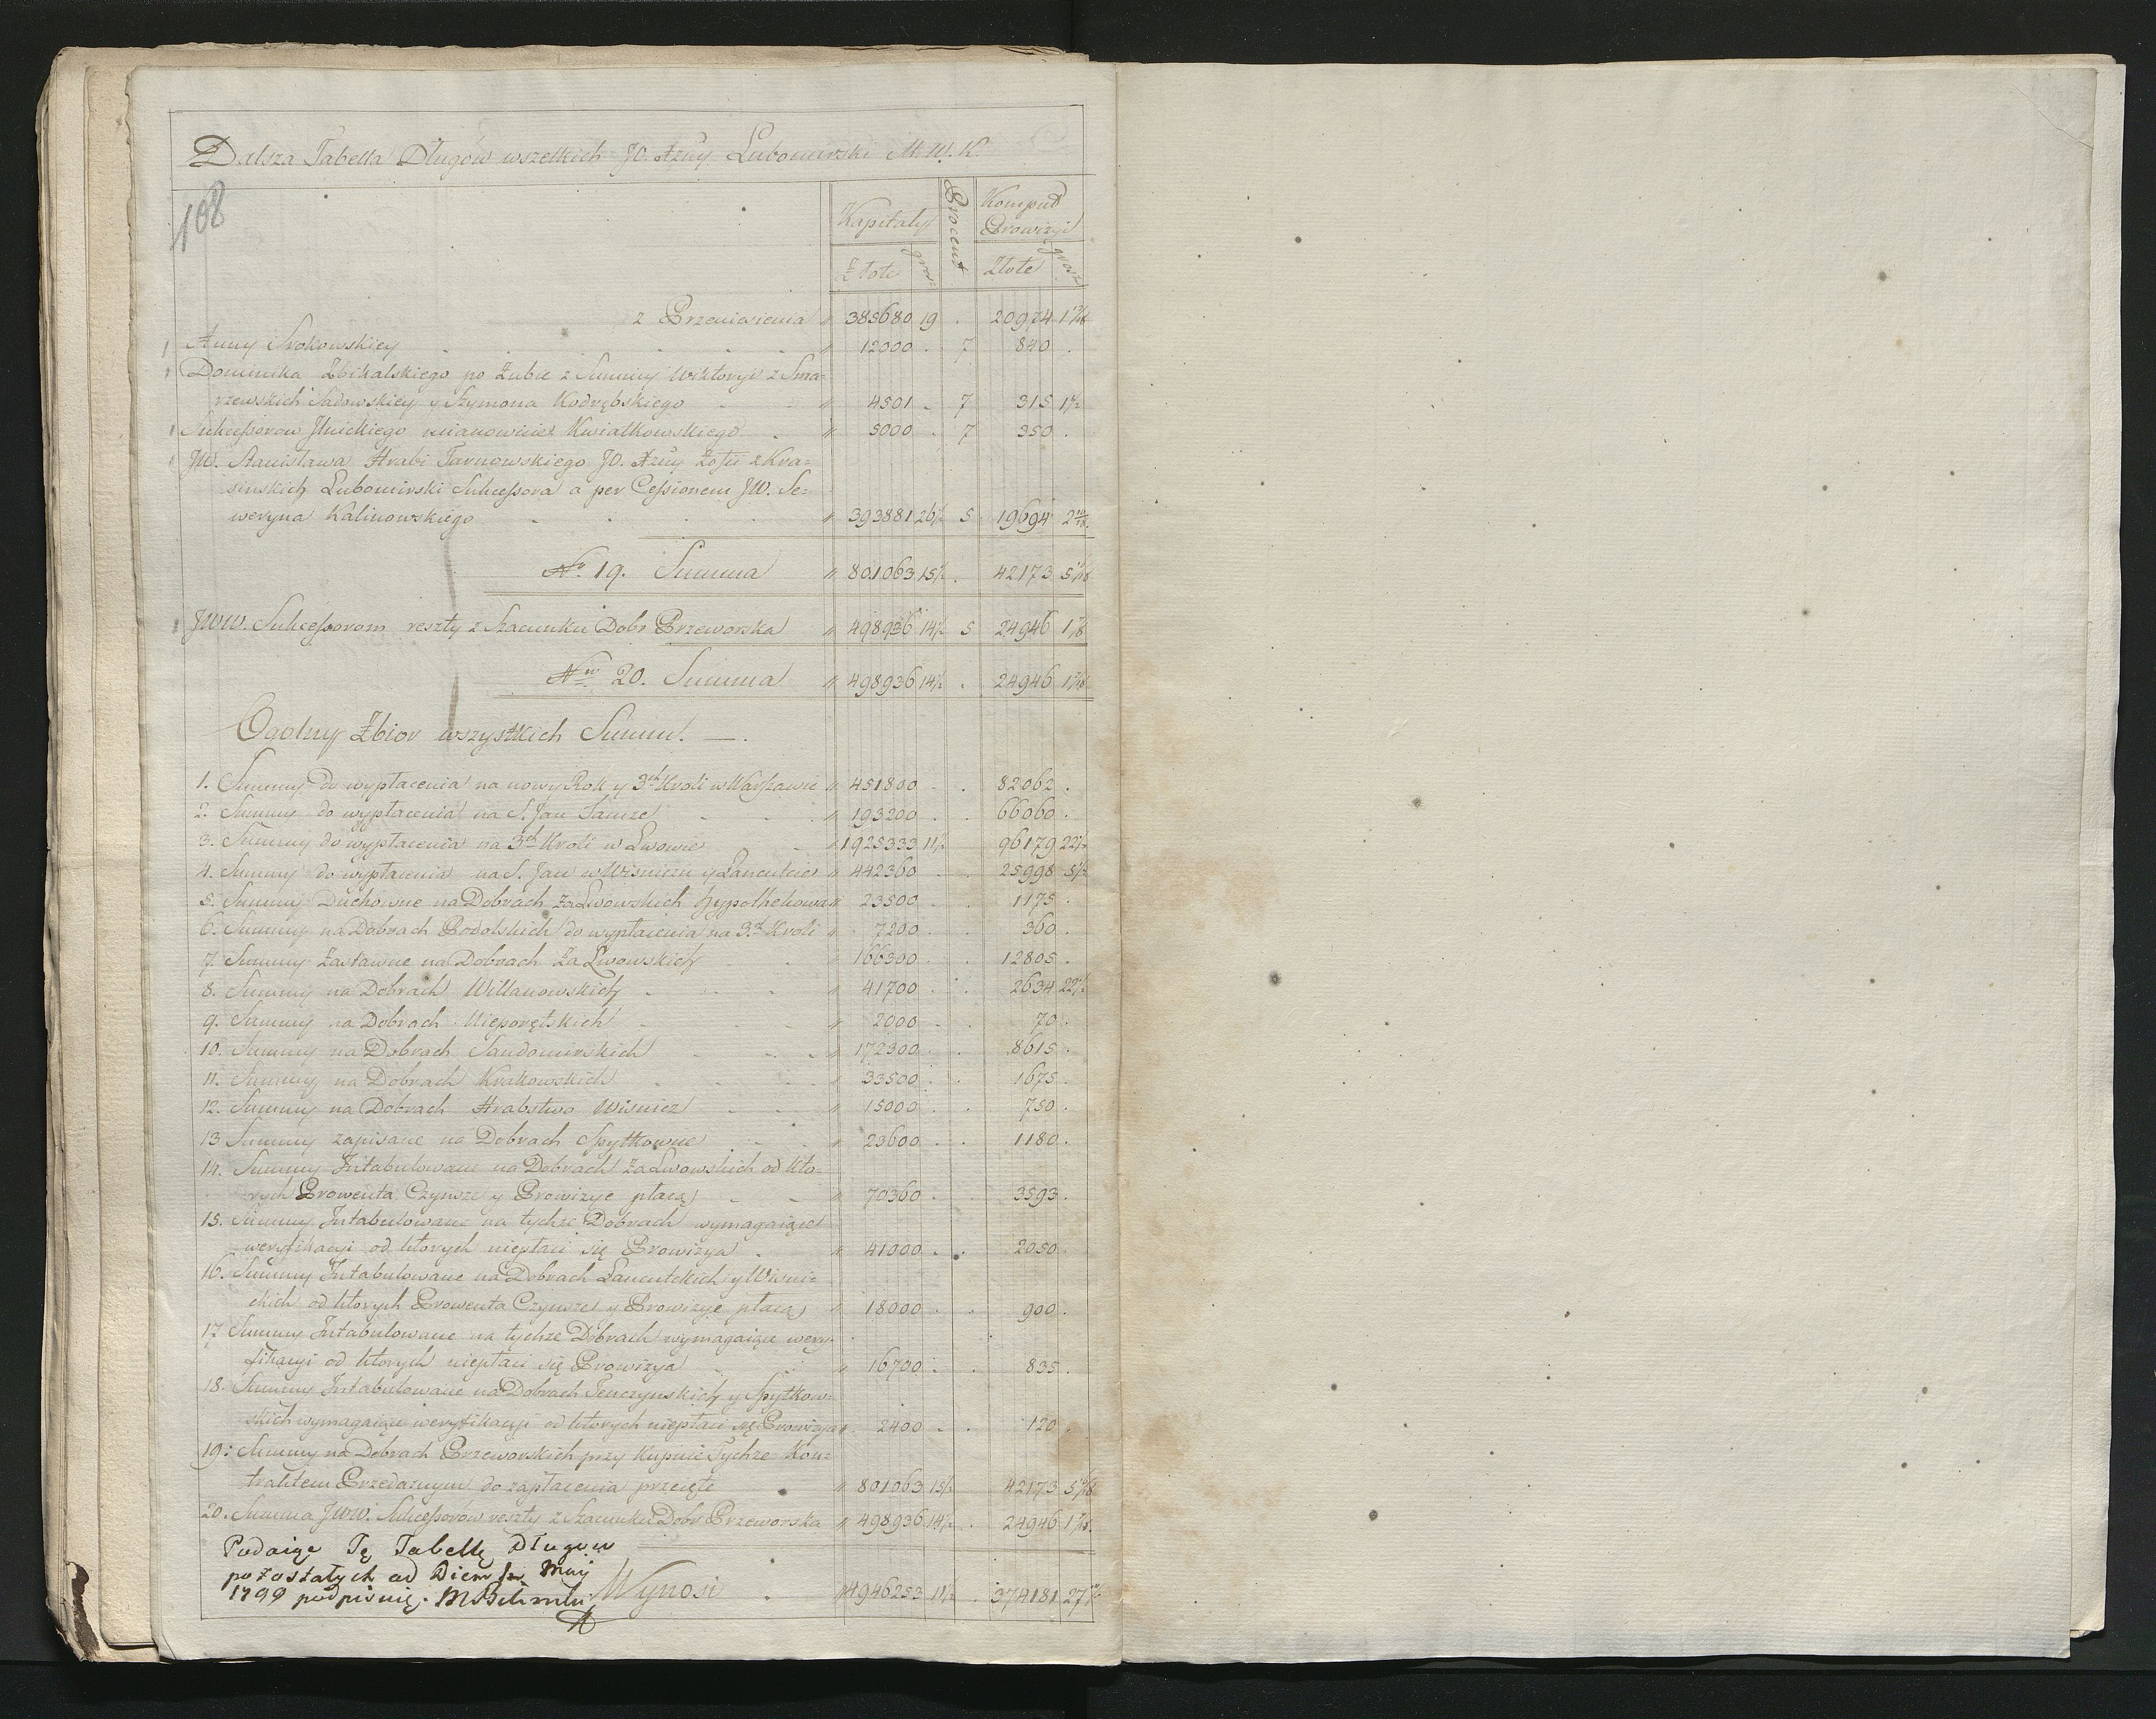 Dalsza Tabella Długow wszelkich JO. Xżny Lubomirski M. W. K.
108
Kapitały Procent Komput
Prowizyi
Złote gro. Złote grosz.
z Przeniesienia " 385680 19 . 20974
Anny Srokowskiey " 12000 . 7 840 .
Dominika Zbikalskiego po Zubie z Summy Wiktoryi z Sma=
rzewskich Sadowskiey y Szymona Kodrębskiego " 4501 . 7 315
Sukcessorow Ilnickiego mianowicie Kwiatkowskiego " 5000 . 7 350 .
JW. Stanisława Hrabi Tarnowskiego JO. Xżny Zofii z Kra=
sinskich Lubomirski Sukcessora a per Cessionem JW. Se=
weryna Kalinowskiego " 393881 26½ 5 19694
No. 19. Summa " 801063 15½ . 42173
JWW. Sukcessorom reszty z Szacunku Dobr Przeworska " 498936 14½ 5 24946
Nro 20. Summa " 498936 14½ . 24946
Ogolny Zbior wszystkich Summ. —.
1. Summy Do wypłacenia na nowy Rok y 3ch Kroli w Warszawie " 451800 . . 82062 .
2. Summy do wypłacenia na S. Jan Tamże " 193200 . . 66060 .
3. Summy do wypłacenia na 3ch Kroli w Lwowie " 1925333 11½ 96179 22½
4. Summy do wypłacenia na S. Jan w Wisniczu y Łancucie " 442360 . 25998 5½
5. Summy Duchowne na Dobrach za Lwowskich hypothekowa " 23500 . 1175 .
6. Summy na Dobrach Podolskich do wypłacenia na 3ch Kroli " 7200 . . 360 .
7. Summy Zastawne na Dobrach Za Lwowskich " 166300 . . 12805 .
8. Summy na Dobrach Willanowskich " 41700 . . 2634 22½
9. Summy na Dobrach Nieporętskich " 2000 . . 70 .
10. Summy na Dobrach Sandomirskich " 172300 . . 8615 .
11. Summy na Dobrach Krakowskich " 33500 . . 1675 .
12. Summy na Dobrach Hrabstwo Wisnicz " 15000 . . 750 .
13 Summy zapisane na Dobrach Spytkowice " 23600 . . 1180 .
14. Summy Intabulowane na Dobrach za Lwowskich od kto=
rych Prowenta Czynsze y Prowizye płacą " 70360 . 3593 .
15. Summy Intabulowane na tychże Dobrach wymagaiące
weryfikacyi od ktorych niepłaci się Prowizya . " 41000 . . 2050 .
16. Summy Intabulowane na Dobrach Łancutckich y Wisni=
ckich od ktorych Prowenta Czynsze y Prowizye płacą " 18000 . . 900 .
17 Summy Intabulowane na tychże Dobrach wymagaiące wery=
fikacyi od ktorych niepłaci się Prowizya " 16700 . . 835 .
18. Summy Intabulowane na Dobrach Tenczynskich y Spytkow=
skich wymagaiące weryfikacyi od ktorych niepłaci się Prowizya " 2400 . . 120 .
19: Summy na Dobrach Przeworskich przy kupnie Tychże Kon=
traktem Przedażnym do zapłacenia przeięte " 801063 15½ 42173
20. Summa JWW. Sukcessorów reszty z Szacunku Dobr Przeworska " 498936 14½ . 24946
Podaiąc Tę Tabellę Długow
pozostałych od Diem Maij
1799 podpisuię.
Wynosi . " 4946253 11½ . 374181 27